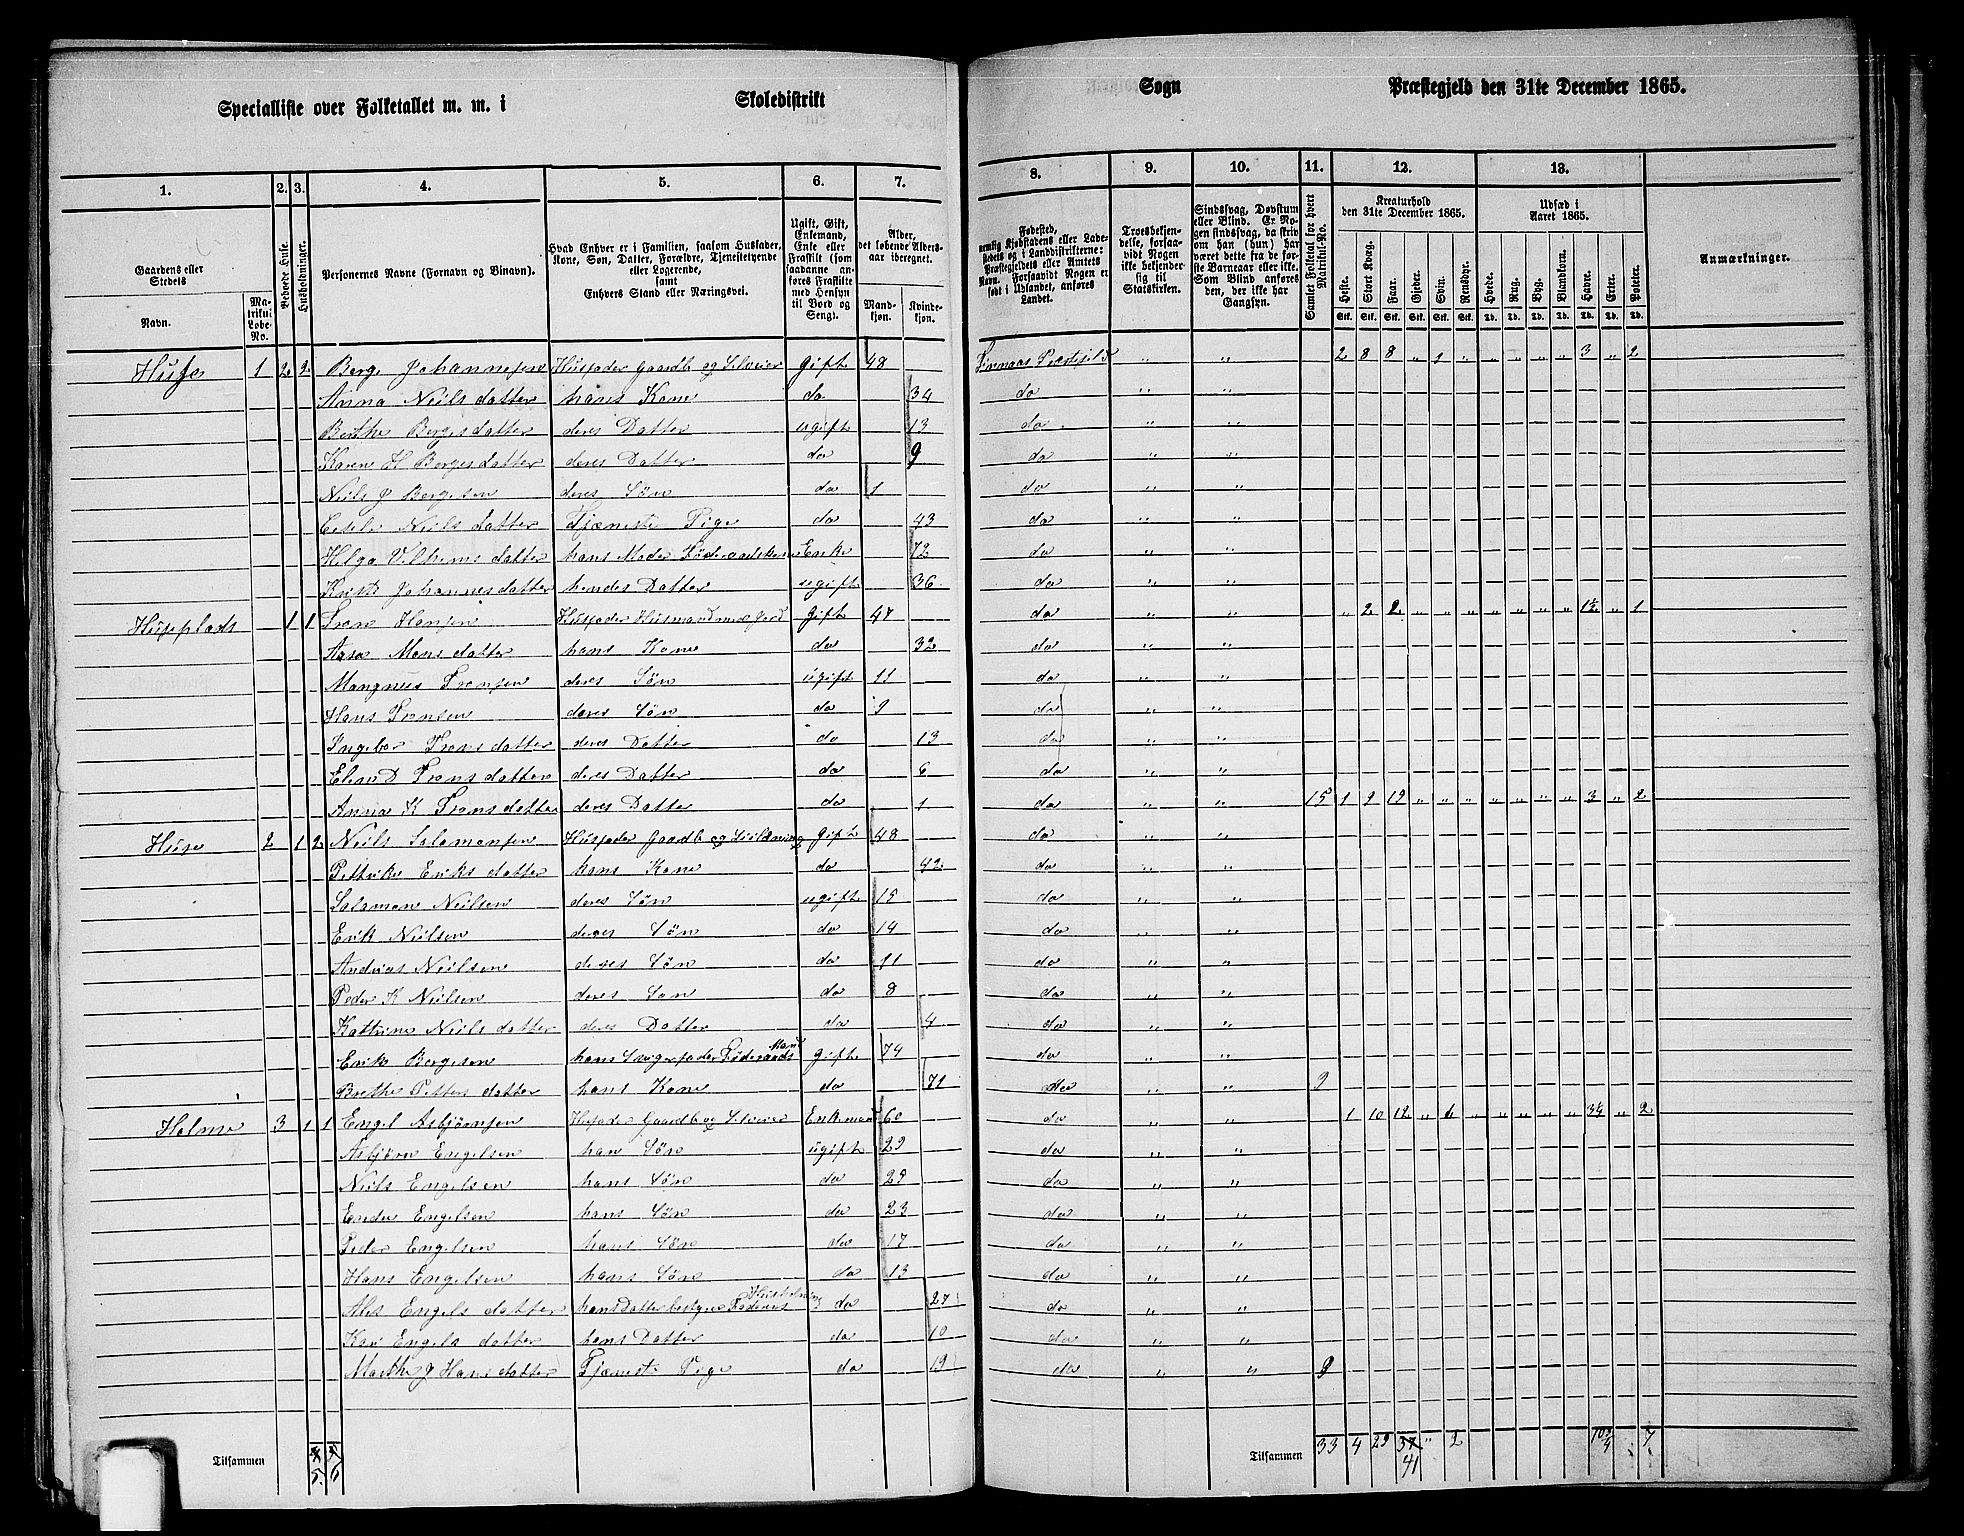 Specialliste over Folketallet m. m. i Skoledistrikt Sogn Præstegjeld den 31te December 1865.
1. 2. 3. 4. 5. 6. 7. 8. 9. 10. 11. 12. 13.
Gaardens eller Stedets
Navn.
Matrikul Løbe-No.
Beboede Huse.
Husholdninger.
Personernes Navne (Fornavn og Binavn).
Hvad Enhver er i Familien, saasom Husfader, Kone, Søn, Datter, Forældre, Tjenestetyende eller Logerende, samt Enhvers Stand eller Næringsvei.
Ugift, Gift, Enkemand, Enke eller Fraskilt (som saadanne anføres Fraskilte med Hensyn til Bord og Seng).
Alder, det løbende Alders-aar iberegnet.
Mandkjøn.
Kvindekjøn.
Fødested, nemlig Kjøbstadens eller Ladestedets og i Landdistrikterne: Præstegjeldets eller Amtets Navn. Forsaavidt Nogen er født i Udlandet, anføres Landet.
Troesbekjendelse, forsaavidt Nogen ikke bekjender sig til Statskirken.
Sindssvag, Døvstum eller Blind. Er Nogen sindssvag, da skriv om han (hun) har været dette fra de første Barneaar eller ikke. Som Blind anføres den, der ikke har Gangsyn.
Samlet Folketal for hvert Matrikul-No.
Kreaturhold den 31te December 1865.
Heste. Stort Kvæg. Faar. Gjeder. Svin. Rensdyr.
Stk. Stk. Stk. Stk. Stk. Stk.
Udsæd i Aaret 1865.
Hvede. Rug. Byg. Blandkorn. Havre. Erter. Poteter.
Td. Td. Td. Td. Td. Td. Td.
Anmærkninger.
Huse 1 2 2 Berge Johannesen Husfader Gaardb og Selveier gift 48 " " 2 8 8 " 1 " " " " " 3 " 2
Anna Neils datter hans Kone do 34 do " "
Berthe Bergesdatter deres Datter ugift 13 do " "
Karen H Bergesdatter deres Datter do 9 do " "
Neils J Bergesen deres Søn do 1 do " "
Neils datter Tjæneste Pige do 43 do " "
Helga Vilhems datter hans Moder Føderaadskone Enke 72 do " "
Johannesdatter hendes Datter ugift 36 do " "
Huseplads 1 1 Tron Hansen Husfader Husmand med Jord gift 47 do " " " 2 2 " " " " " " " 1½ " 1
Aasa Mons datter hans Kone do 32 do " "
Mangnus Tronsen deres Søn ugift 11 do " "
Hans Tronsen deres Søn do 9 do " "
Ingebor Trons datter deres Datter do 13 do " "
Elen D Trons datter deres Datter do 6 do " "
Anna K Trons datter deres Datter do 1 do " " 15 1 9 19 " " " " " " " 3 " 2
Huse 2 1 2 Neils Salamonsen Husfader Gaardb og gift 48 do " "
Eriks datter hans Kone do 42 do " "
Salamon Neilsen deres Søn ugift 15 do " "
Erik Neilsen deres Søn do 14 do " "
Andreas Neilsen deres Søn do 11 do " "
Peder K Neilsen deres Søn do 8 do " "
Kattrine Neils datter deres Datter do 4 do " "
Erik Bergesen hans Svigerfader Føderaads Mand gift 74 do " "
Berthe Petters datter hans Kone do 71 do " " 9
Holme 3 1 1 Engel Asbjørnsen Husfader Gaardb og Selveier Enkemand 60 do " " 1 10 12 " 1 " " " " " 3¼ " 2
Asbjørn Engelsen han Søn ugift 29 do " "
Neils Engelsen hans Søn do 25 do " "
Ender Engelsen hans Søn do 23 do " "
Peder Engelsen hans Søn do 17 do " "
Hans Engelsen hans Søn do 13 do " "
Engels datter hans Datter bestyrer Faderens Husholdning do 27 do " "
Kari Engels datter hans Datter do 10 do " "
Marthe J Hans datter Tjæneste Pige do 19 do " " 9
Tilsammen 5 6 Tilsammen 33 4 29 37 " 2 10¾ " 7
41